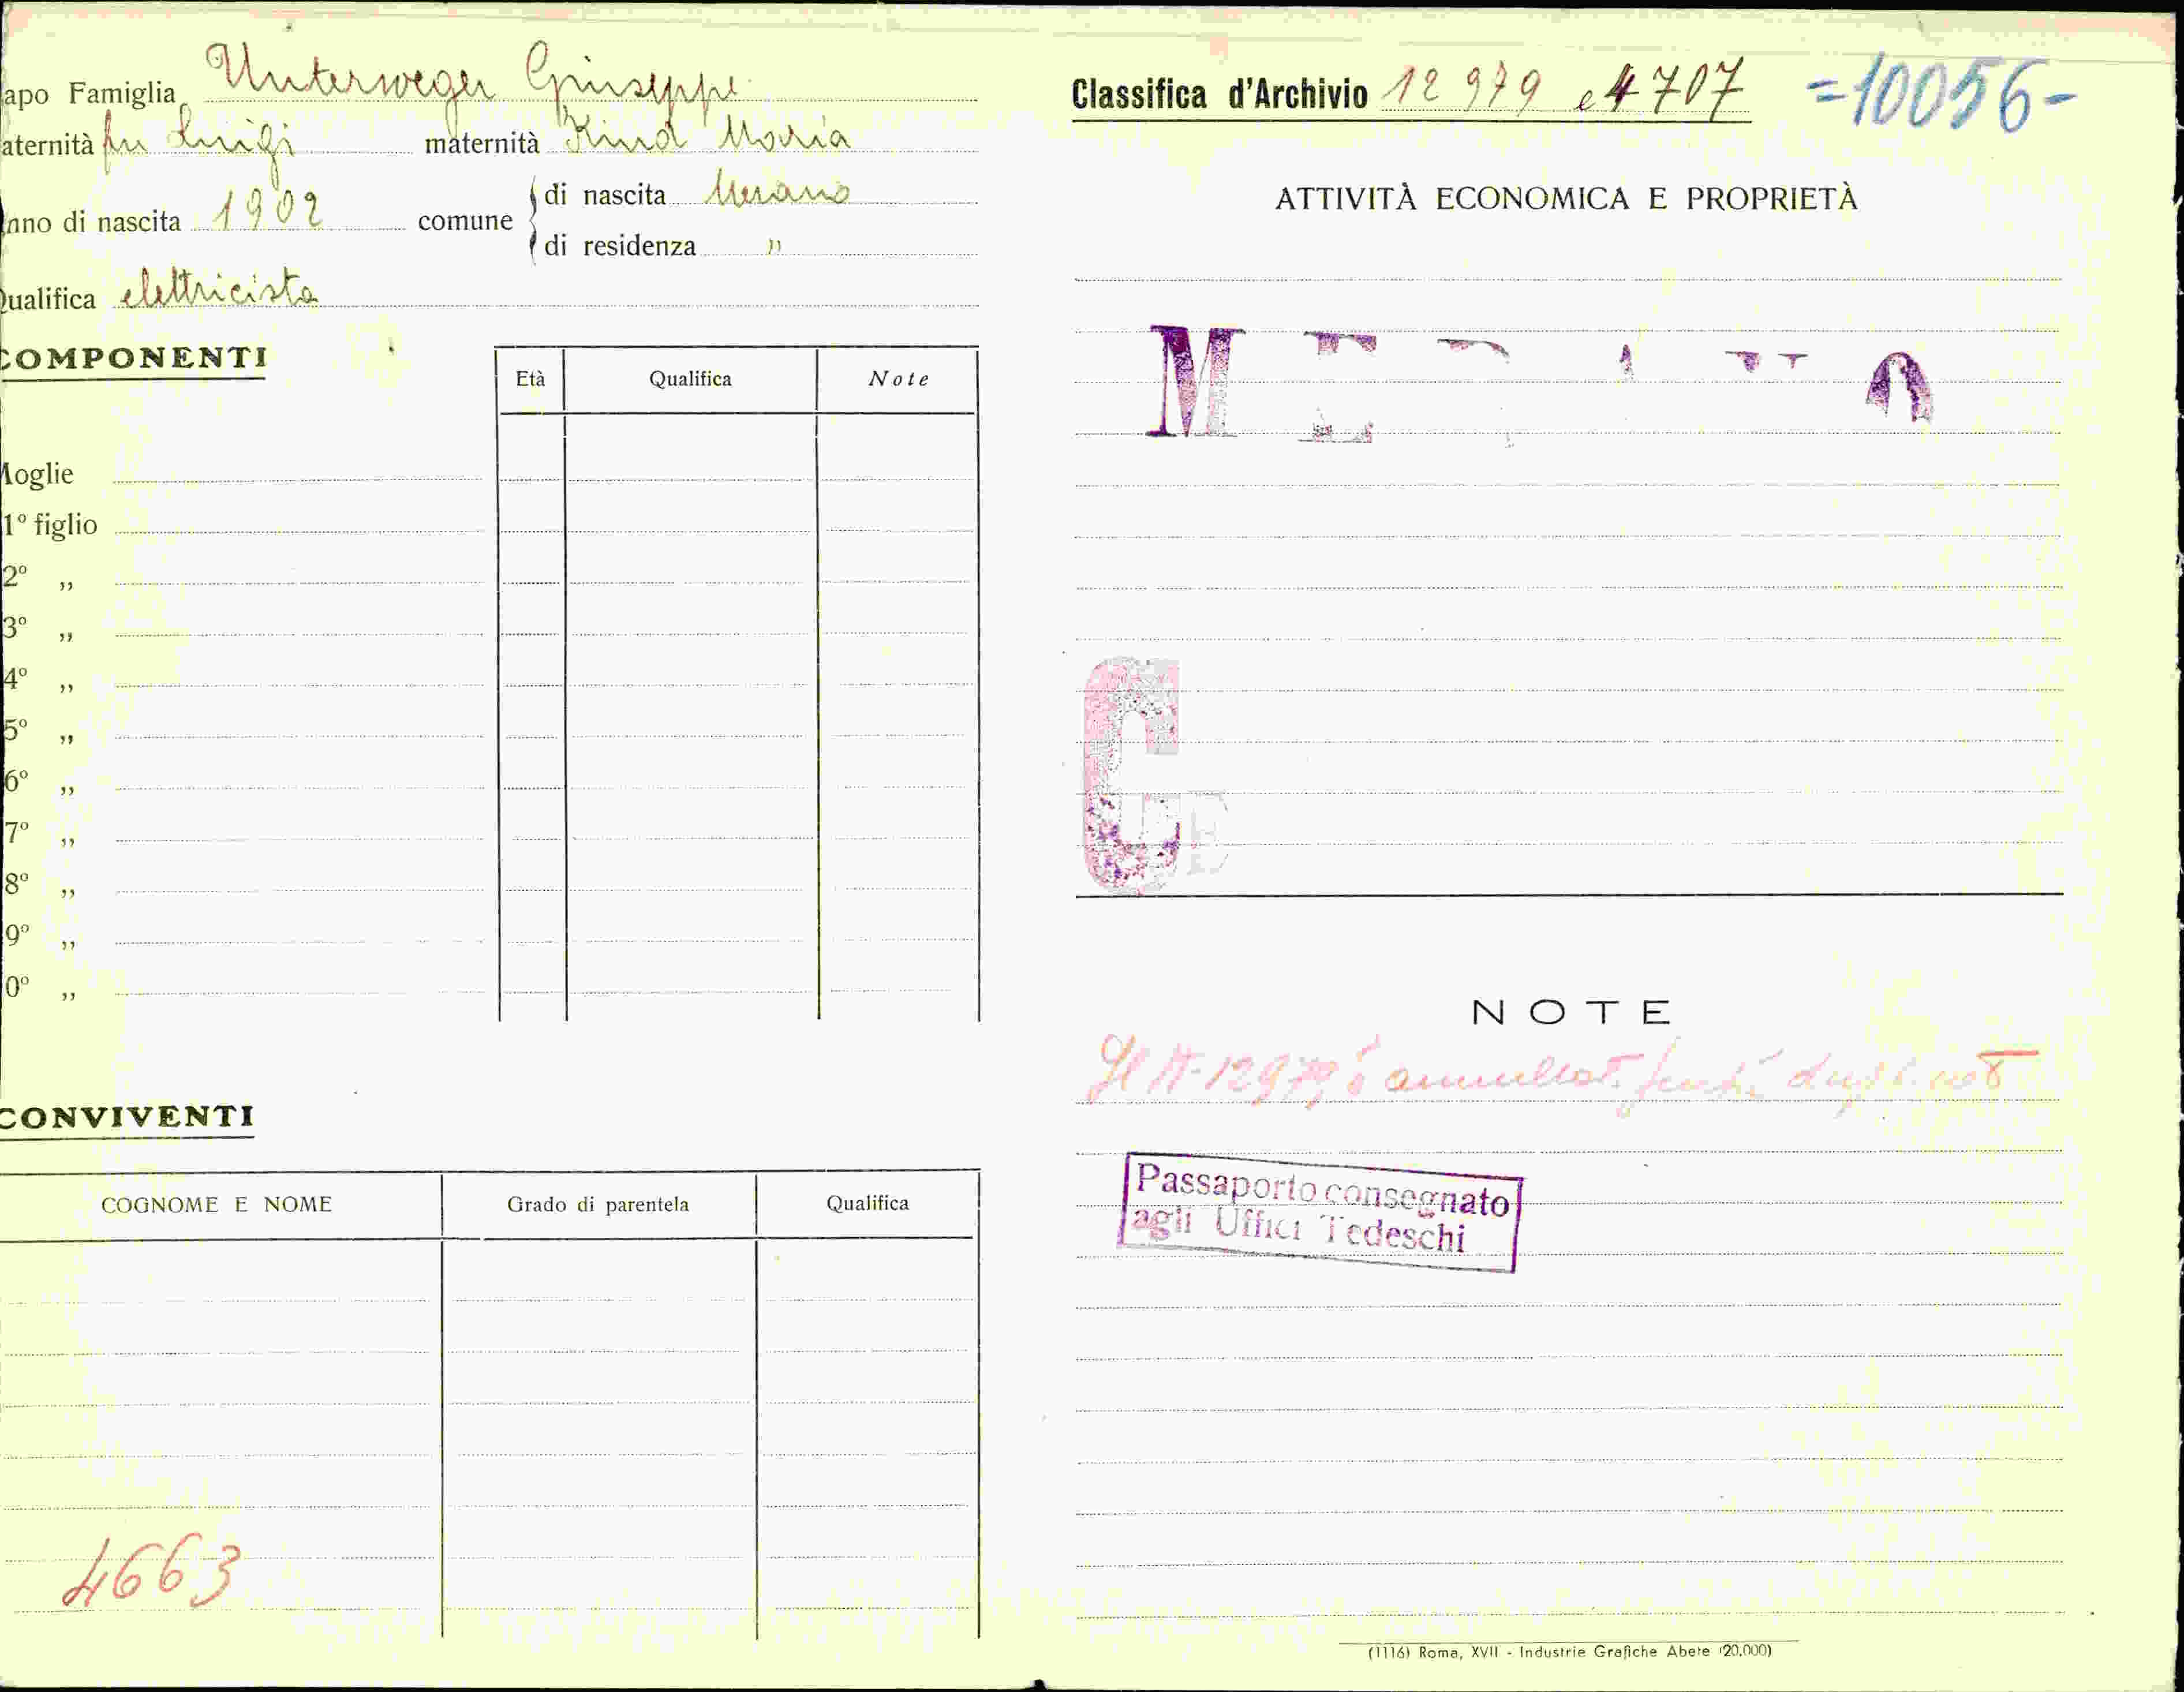 apo Famiglia Unterweger Giuseppe
aternità fu Luigi maternità Kind Maria
nno di nascita 1902 comune di nascita Merano
di residenza "
ualifica elettricista
COMPONENTI
Età Qualifica Note
Moglie
1º figlio
2º ,,
3º ,,
4º ,,
5º ,,
6º ,,
7º ,,
8º ,,
9º ,,
0º ,,
CONVIVENTI
COGNOME E NOME Grado di parentela Qualifica
4663
Classifica d'Archivio 12979 e 4707 =10056-
ATTIVITÀ ECONOMICA E PROPRIETÀ
MERANO
C
NOTE
Il N. 12979 è annullato
Passaporto consegnato
agli Uffici Tedeschi
(1116) Roma, XVII - Industrie Grafiche Abete (20.000)